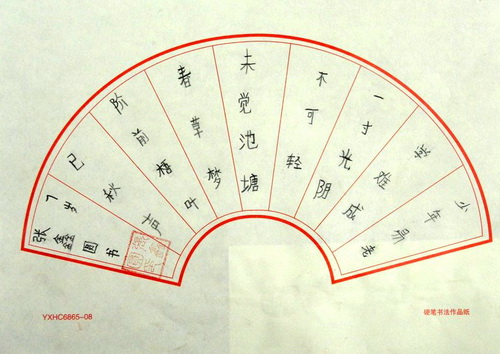 少年易老
学难成
一寸光阴
不可轻
未觉池塘
春草梦
阶前梧叶
已秋声
7岁
张鑫圆书
YXHC6865-08
硬笔书法作品纸